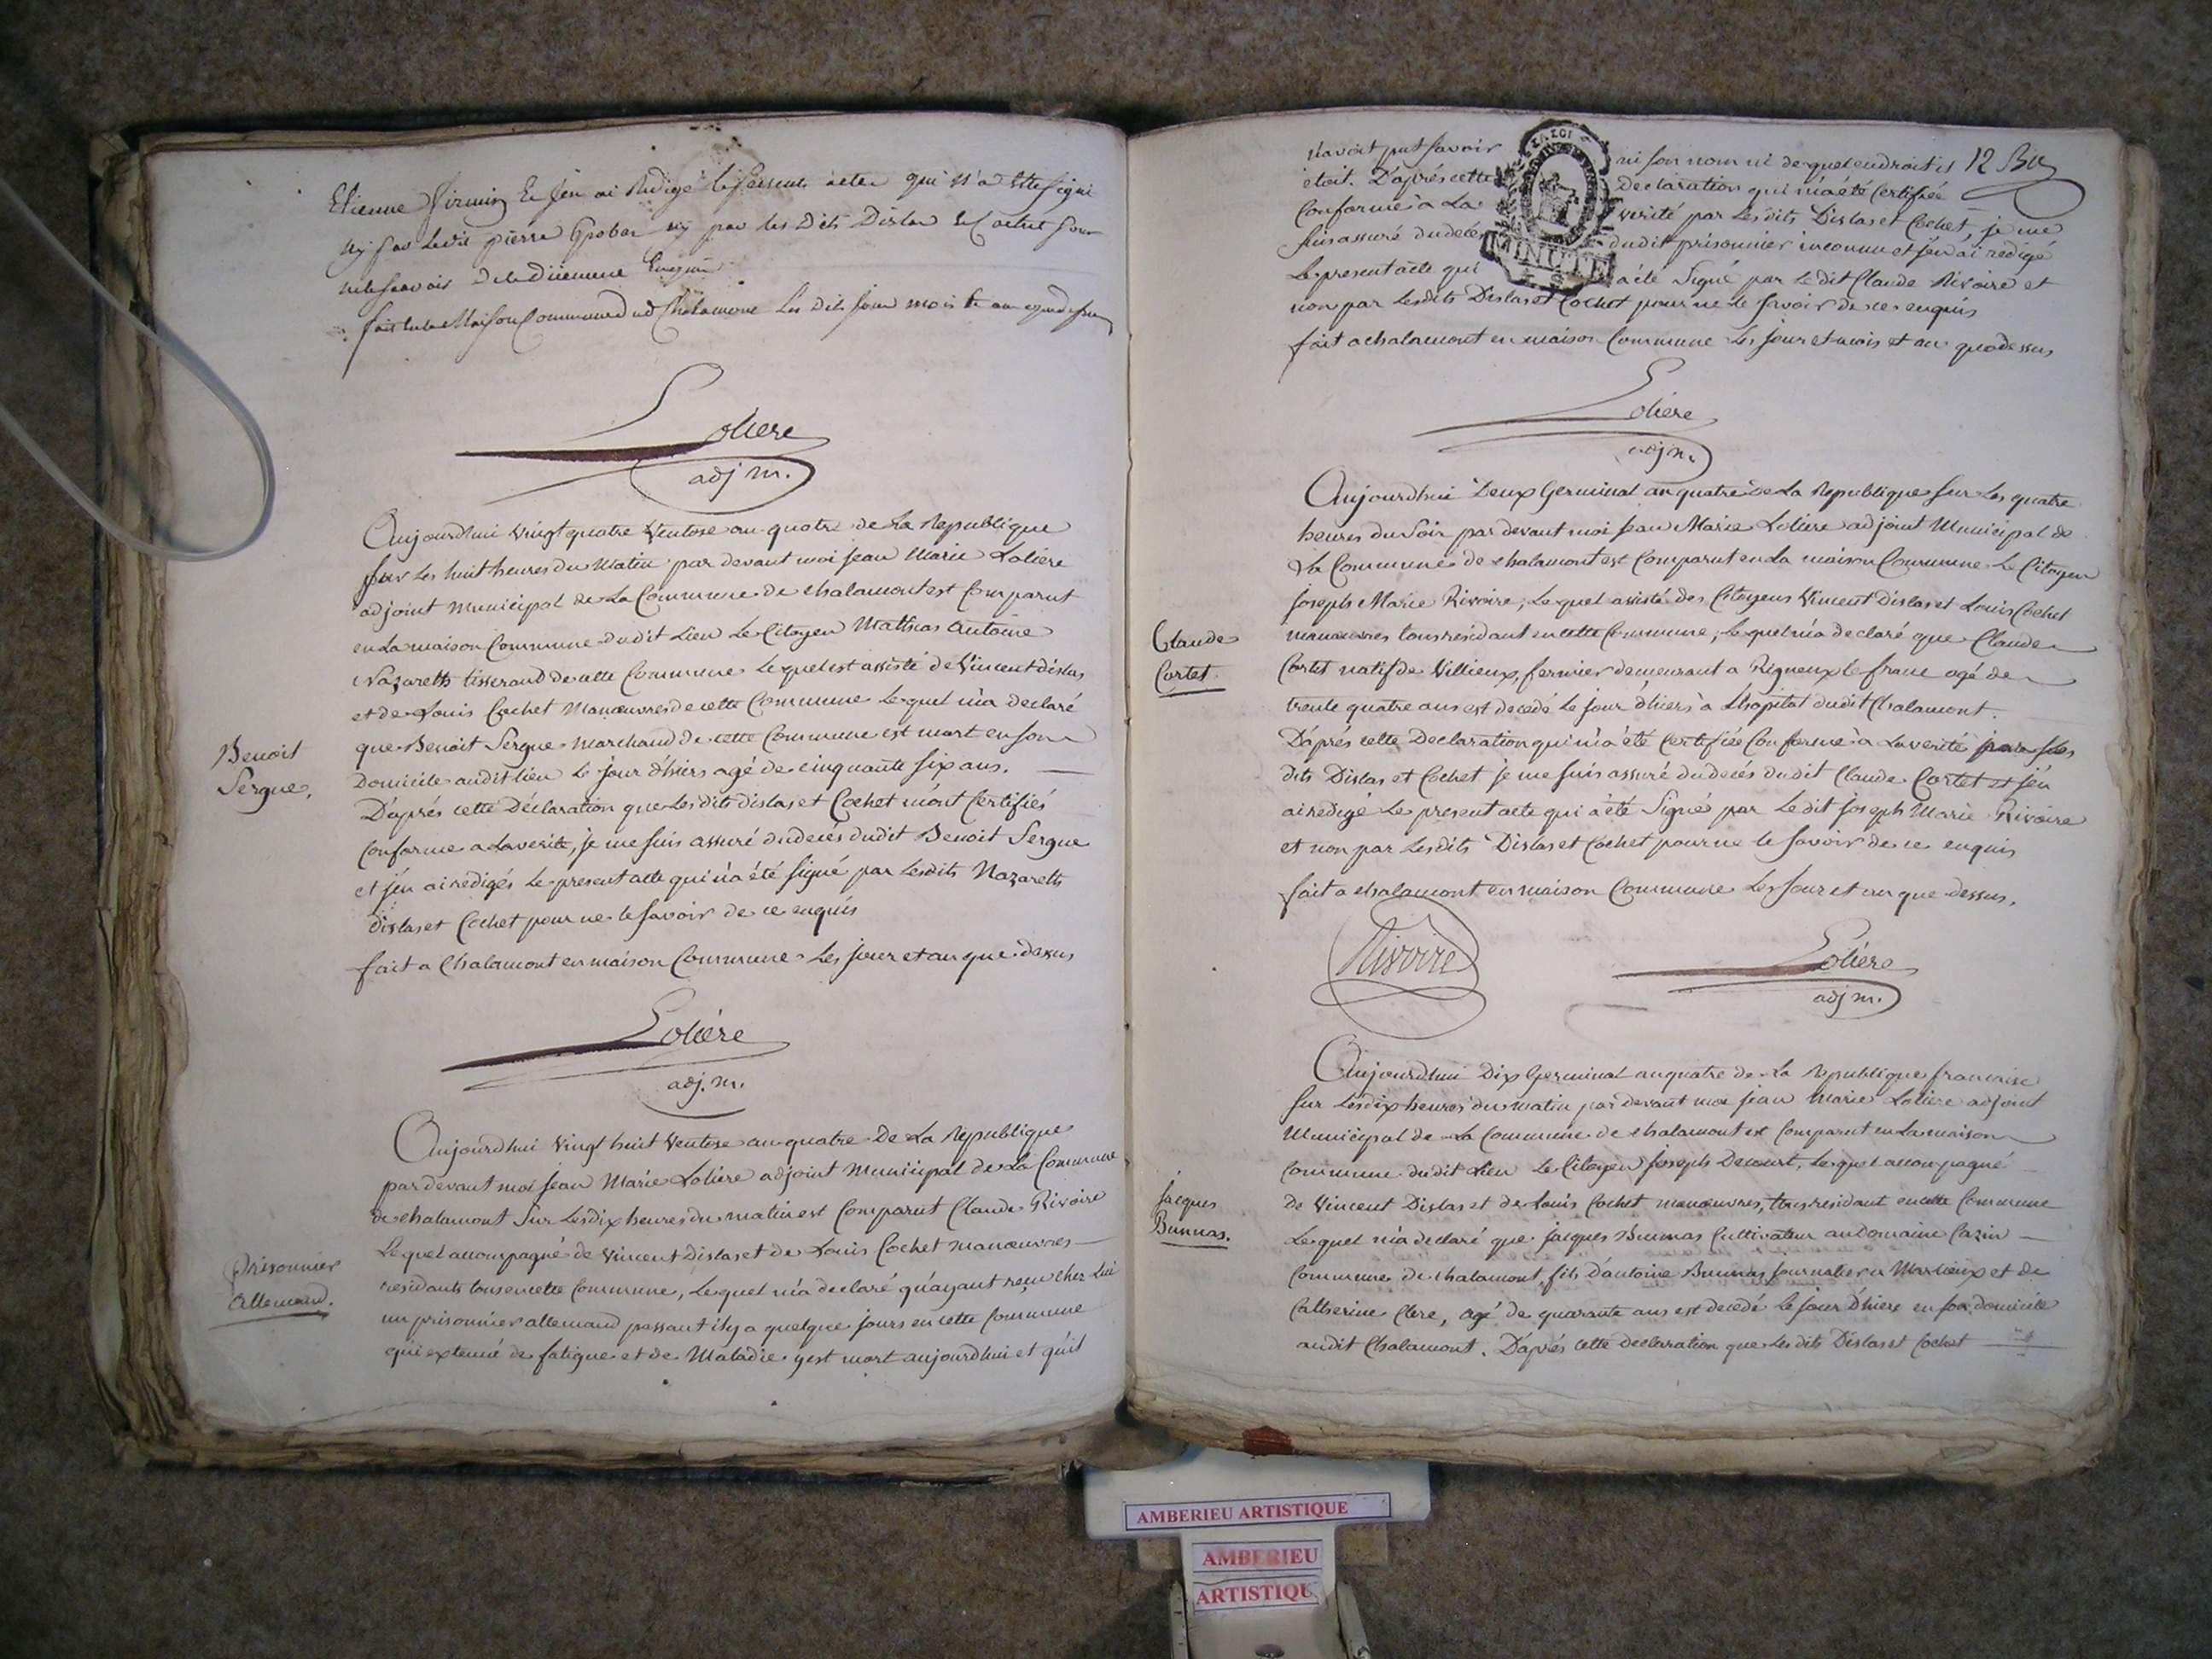 Etienne Firmin Et j'en ai Redigé le present acte qui n'a Eté signé
ny par ledit pierre ny par les Dits Dislas Et Cochet pour
ne le sçavoir de ce
fait en la Maison Commune dud Chalamont Les Dits jour mois Et an que dessus
Lolière
adj m.
Aujourdhui Vingt quatre Ventose an quatre de La Republique
sur Les huit heures du Matin par devant moi Jean Marie Loliere
adjoint Municipal de La Commune de chalamont est Comparut
en La maison Commune dudit Lieu Le Citoyen Mathias Antoine
Nazareth tisserand de cette Commune Lequel est assisté de Vincent dislas
et de Louis Cochet Manœuvres de cette Commune Lequel m'a declaré
que Benoit Sergue Marchand de cette Commune est mort en son
Domicile audit lieu Le jour d'hiers agé de cinquante six ans.
D'aprés cette Déclaration que Les dits dislas et Cochet m'ont Certifiés
Conforme a La verité, je me suis assuré du decés dudit Benoit Sergue
et j'en ai redigés Le present acte qui n'a été signé par Lesdits Nazareth
dislas et Cochet pour ne le savoir de ce enquis
fait a Chalamont en maison Commune Les jour et an que dessus
Benoit
Sergue.
Lolière
adj. m.
Aujourdhui Vingt huit Ventose an quatre De La Republique
par devant moi Jean Marie Loliere adjoint Municipal de La Commune
de chalamont Sur Les dix heures du matin est Comparut Claude Rivoire
Lequel accompagné de Vincent Dislas et de Louis Cochet manœuvres
residants tous en cette Commune, Lequel m'a declaré qu'ayant reçu chez Lui
un prisonnier allemand passant il y a quelque jours en cette Commune
qui extenué de fatigue et de Maladie y est mort aujourdhui et qu'il
Prisonnier
Allemand.
12 Bis
n'avoit put savoir ni son nom ni de quel endroit il
étoit. D'aprés cette Declaration qui m'a été Certifiée
Conforme à La verité par Les dits Dislas et Cochet, je me
suis assuré du decés dudit prisonnier inconnu et j'en ai redigé
Le present acte qui a été Signé par Le dit Claude Rivoire et
non par Lesdits Dislas et Cochet pour ne le savoir de ce enquis
fait a chalamont en maison Commune Les jour et mois et an que dessus
LA LOI
MINUTE
Loliere
adj m.
Aujourdhui Deux Germinal an quatre de La Republique sur Les quatre
heures du Soir par devant moi Jean Marie Loliere adjoint Municipal de
La Commune de chalamont est Comparut en La maison Commune Le Citoyen
Joseph Marie Rivoire, Lequel assisté des Citoyens Vincent Dislas et Louis Cochet
manœuvres tous residant en cette Commune, Lequel m'a declaré que Claude
Cortet natif de Villieux, fermier demeurant a Rigneux le franc agé de
trente quatre ans est decedé Le jour d'hiers à L'hopital dudit Chalamont.
D'aprés cette Declaration qui m'a été Certifiée Conforme à La verité par Les
dits Dislas et Cochet je me suis assuré du decés dudit Claude Cortet et j'en
ai redigé Le present acte qui a été Signé par Le dit Joseph Marie Rivoire
et non par Lesdits Dislas et Cochet pour ne le savoir de ce enquis
fait a chalamont en maison Commune Les jour et an que dessus.
Claude
Cortet.
Rivoire
Loliere
adj m.
Aujourdhui Dix Germinal an quatre de La Republique francaise
Sur Les dix heures du matin par devant moi Jean Marie Loliere adjoint
Municipal de La Commune de chalamont est Comparut en La maison
Commune dudit Lieu Le Citoyen Joseph Decourt, Lequel accompagné
De Vincent Dislas et de Louis Cochet manœuvres, tous residant en cette Commune
Lequel m'a declaré que Jacques Bunnas Cultivateur au Domaine Cazin
Commune de chalamont, fils d'antoine Bunnas journalier a Marlieux et de
Catherine Clere, agé de quarante ans est decedé Le jour d'hiere en son domicile
audit Chalamont. D'aprés cette declaration que Les dits Dislas et Cochet
Jacques
Bunnas.
AMBERIEU ARTISTIQUE
AMBERIEU
ARTISTIQU